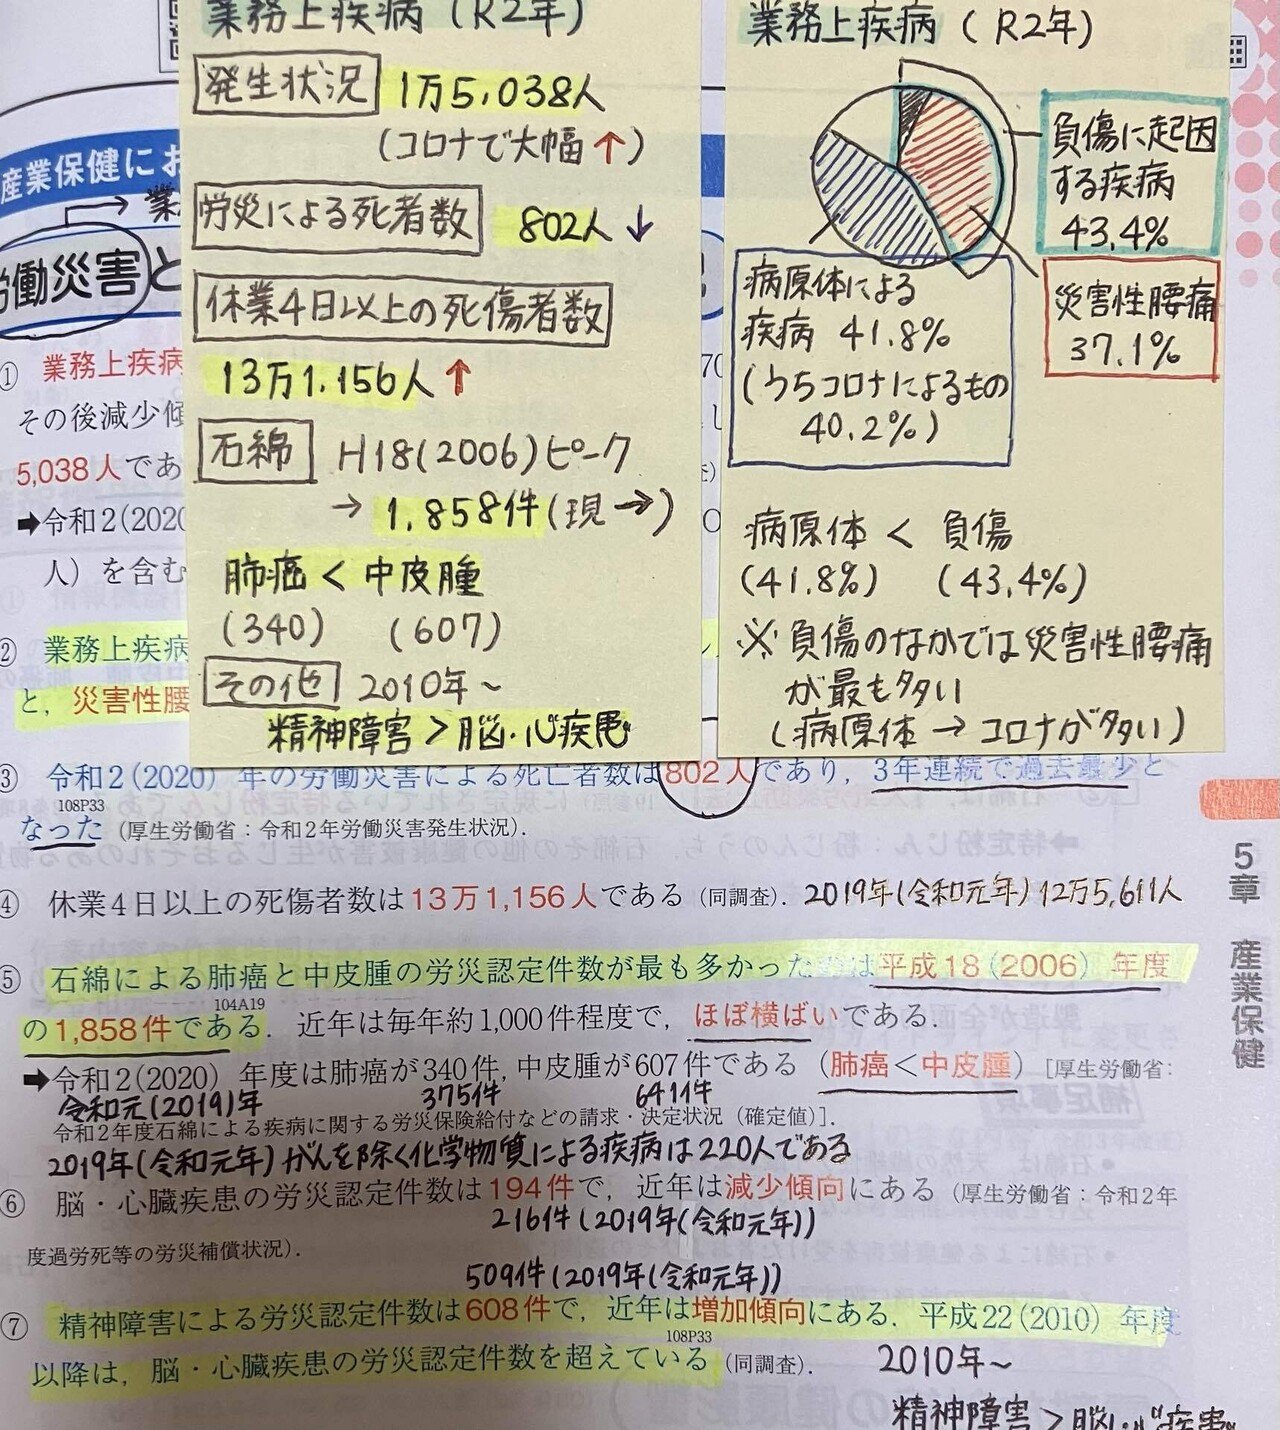 業務上疾病(R2年)
発生状況 1万5,038人
(コロナで大幅↑)
労災による死者数 802人↓
休業4日以上の死傷者数
13万1,156人↑
石綿 H18(2006)ピーク
→1,858件(現→)
肺癌<中皮腫
(340) (607)
その他 2010年~
精神障害>脳・心疾患
業務上疾病(R2年)
負傷に起因
する疾病
43.4%
災害性腰痛
37.1%
病原体による
疾病 41.8%
(うちコロナによるもの
40.2%)
病原体 < 負傷
(41.8%) (43.4%)
※負傷のなかでは災害性腰痛
が最も多い
(病原体→コロナが多い)
産業保健にお
→業
労働災害と
① 業務上疾病
その後減少傾
5,038人であ
➡令和2(2020
人)を含む
② 業務上疾病
と,災害性腰
③ 令和2(2020)年の労働災害による死亡者数は802人であり,3年連続で過去最少と
108P33
なった(厚生労働省:令和2年労働災害発生状況).
④ 休業4日以上の死傷者数は13万1,156人である(同調査). 2019年(令和元年)12万5,611人
⑤ 石綿による肺癌と中皮腫の労災認定件数が最も多かったのは平成18(2006)年度
104A19
の1,858件である.近年は毎年約1,000件程度で,ほぼ横ばいである.
➡令和2(2020)年度は肺癌が340件,中皮腫が607件である(肺癌<中皮腫)[厚生労働省:
令和元(2019)年 375件 641件
令和2年度石綿による疾病に関する労災保険給付などの請求・決定状況(確定値)].
2019年(令和元年)がんを除く化学物質による疾病は220人である
⑥ 脳・心臓疾患の労災認定件数は194件で,近年は減少傾向にある(厚生労働省:令和2年
216件(2019年(令和元年))
度過労死等の労災補償状況).
509件(2019年(令和元年))
⑦ 精神障害による労災認定件数は608件で,近年は増加傾向にある.平成22(2010)年度
108P33
以降は,脳・心臓疾患の労災認定件数を超えている(同調査). 2010年~
精神障害>脳・心疾患
5章 産業保健